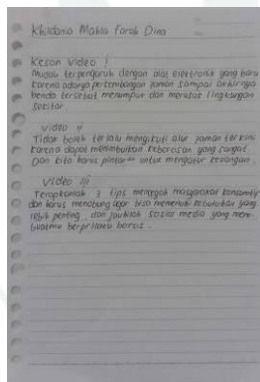 Khidania Makla Farah Dina
Kesan Video I
Mudah terpengaruh dengan alat elektronik yang baru
karena adanya perkembangan jaman sampai akhirnya
benda tersebut menumpuk dan merusak lingkungan
sekitar.
Video II
Tidak boleh terlalu mengikuti alur jaman terkini
karena dapat menimbulkan keborosan yang sangat.
Dan kita harus pintar" untuk mengatur keuangan.
Video III
Terapkanlah 3 tips mencegah masyarakat konsumtif
dan harus menabung agar bisa memenuhi kebutuhan yang
lebih penting. dan jauhilah sosial media yang mem-
buatmu berprilaku boros.